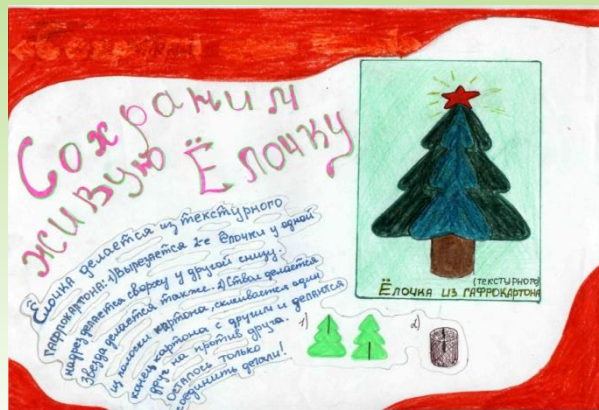 Сохраним
живую Ёлочку
Ёлочка делается из текстурного
гафрокартона: 1) Вырезается 2-е ёлочки у одной
надрез делается сверху у другой снизу.
Звезда делается также. 2) Ствол делается
из полоски картона, склеивается один
конец картона с другим и делаются
друг на против друга.
Осталось только
соединить детали!
(текстурного)
Ёлочка из гафрокартона
1)
2)